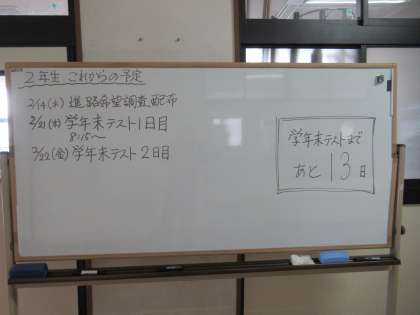 2年生 これからの予定
2/14(木) 進路希望調査配布
2/21(木) 学年末テスト1日目
8:15〜
2/22(金) 学年末テスト2日目
学年末テストまで
あと13日